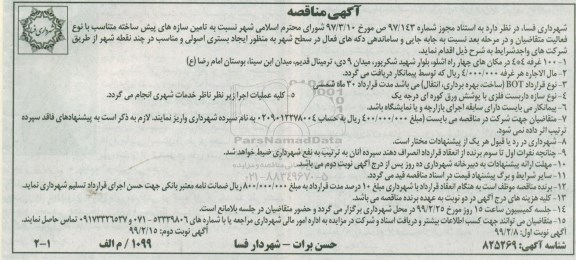 آگهی مناقصه
شهرداری فسا
شهرداری فسا، در نظر دارد به استناد مجوز شماره ۹۷/۱۴۳ ص مورخ ۹۷/۳/۱۰ شورای محترم اسلامی شهر نسبت به تامین سازه های پیش ساخته متناسب با نوع
فعالیت متقاضیان و در مرحله بعد نسبت به جابه جایی و ساماندهی دکه های فعال در سطح شهر به منظور ایجاد بستری اصولی و مناسب در چند نقطه شهر از طریق
شرکت های واجدشرایط به شرح ذیل اقدام نماید.
۱- ۱۰۰ غرفه ۴×۴ در مکان های چهار راه اشنلو، بلوار شهید شکرپور، میدان ۹ دی، ترمینال قدیم، میدان ابن سینا، بوستان امام رضا (ع)
۲- مال الاجاره هر غرفه ۴/۰۰۰/۰۰۰ ریال که توسط پیمانکار دریافت می گردد.
۳- نوع قرارداد BOT (ساخت، بهره برداری، انتقال) می باشد مدت قرارداد ۳۰ ماه شمسی
۴- نوع سازه داربست فلزی با پوشش ورق کوره ای درجه یک
۵- کلیه عملیات اجرا زیر نظر ناظر خدمات شهری انجام می گردد.
۶- پیمانکار می بایست دارای سابقه اجرای بازارچه و یا نمایشگاه باشد.
۷- متقاضیان جهت شرکت در مناقصه می بایست (مبلغ ۴۰۰/۰۰۰/۰۰۰ ریال به حساب ۰۲۰۹۰۱۲۲۷۸۰۰۴ به نام سپرده شهرداری واریز نمایند. لازم به ذکر است به پیشنهادهای فاقد سپرده
ترتیب اثر داده نمی شود.
۸- شهرداری در رد یا قبول هر یک از پیشنهادات مختار است.
۹- چنانچه نفرات اول تا سوم برنده از انعقاد قرارداد انصراف دهند سپرده آنان به ترتیب به نفع شهرداری ضبط خواهد شد.
۱۰- مهلت ارائه پیشنهادات به دبیرخانه شهرداری ده روز پس از درج آگهی نوبت دوم می باشد.
۱۱- سایر شرایط و برگ پیشنهاد قیمت در اسناد مناقصه قید می گردد.
۱۲- برنده مناقصه موظف است به هنگام انعقاد قرارداد با شهرداری مبلغ ۱۰ درصد مدت قرارداد به مبلغ ۸۰۰/۰۰۰/۰۰۰ ریال ضمانت نامه معتبر بانکی جهت حسن اجرای قرارداد تسلیم شهرداری نماید.
۱۳- کلیه هزینه های درج آگهی در دو نوبت به عهده برنده مناقصه می باشد.
۱۴- جلسه کمیسیون ساعت ۱۵ روز مورخ ۹۹/۲/۲۵ در محل شهرداری برگزار می گردد و حضور متقاضیان در جلسه بلامانع است.
۱۵- متقاضیان می توانند جهت کسب اطلاعات بیشتر و دریافت اسناد و شرکت در مزایده به اداره امور مالی شهرداری مراجعه یا با شماره های ۵۳۳۳۹۸۰۶ - ۰۷۱ و ۰۹۱۷۳۳۲۶۵۳۷ تماس حاصل نمایند.
آگهی نوبت اول: ۹۹/۲/۸
آگهی نوبت دوم: ۹۹/۲/۱۵
شناسه آگهی: ۸۲۵۲۶۹
حسن برات - شهردار فسا
۱۰۹۹/ م الف
۲-۱
ParsNamadData
۰۲۱-۸۸۳۴۹۶۷۰-۵